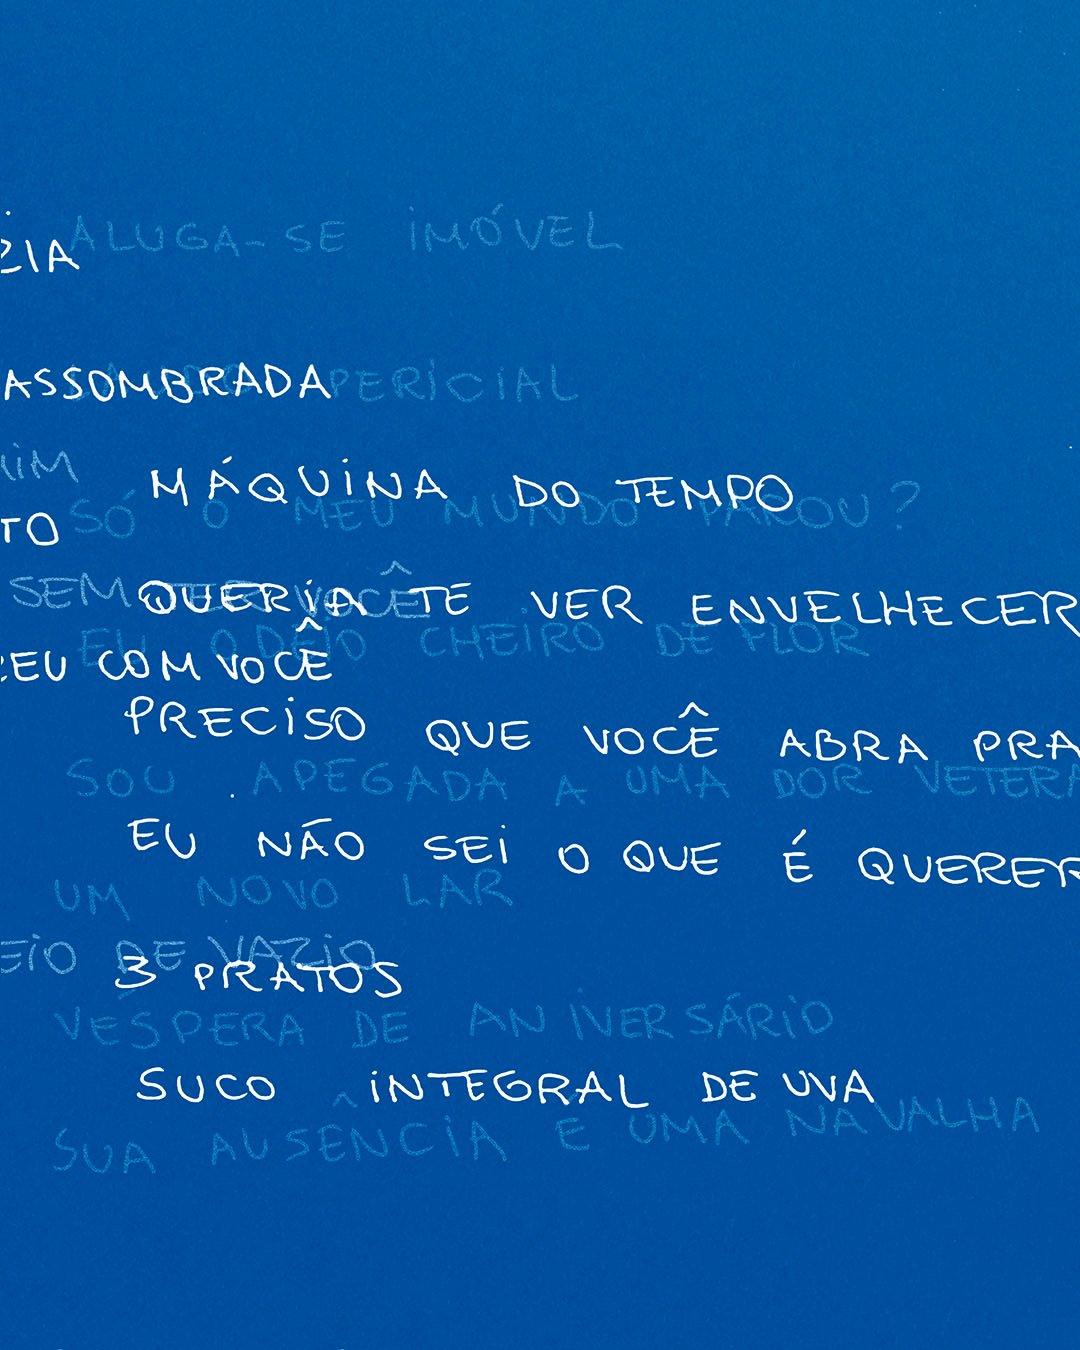 ALUGA-SE IMÓVEL
ZIA
ASSOMBRADA PERICIAL
MÁQUINA DO TEMPO
SÓ O MEU MUNDO PAROU?
TO
SEM VOCÊ
QUERIA TE VER ENVELHECER
EU ODEIO CHEIRO DE FLOR
EU COM VOCÊ
PRECISO QUE VOCÊ ABRA PRA
SOU APEGADA A UMA DOR VETERA
EU NÃO SEI O QUE É QUERER
UM NOVO LAR
EIO DE VAZIO
3 PRATOS
VÉSPERA DE ANIVERSÁRIO
SUCO INTEGRAL DE UVA
SUA AUSÊNCIA É UMA NAVALHA